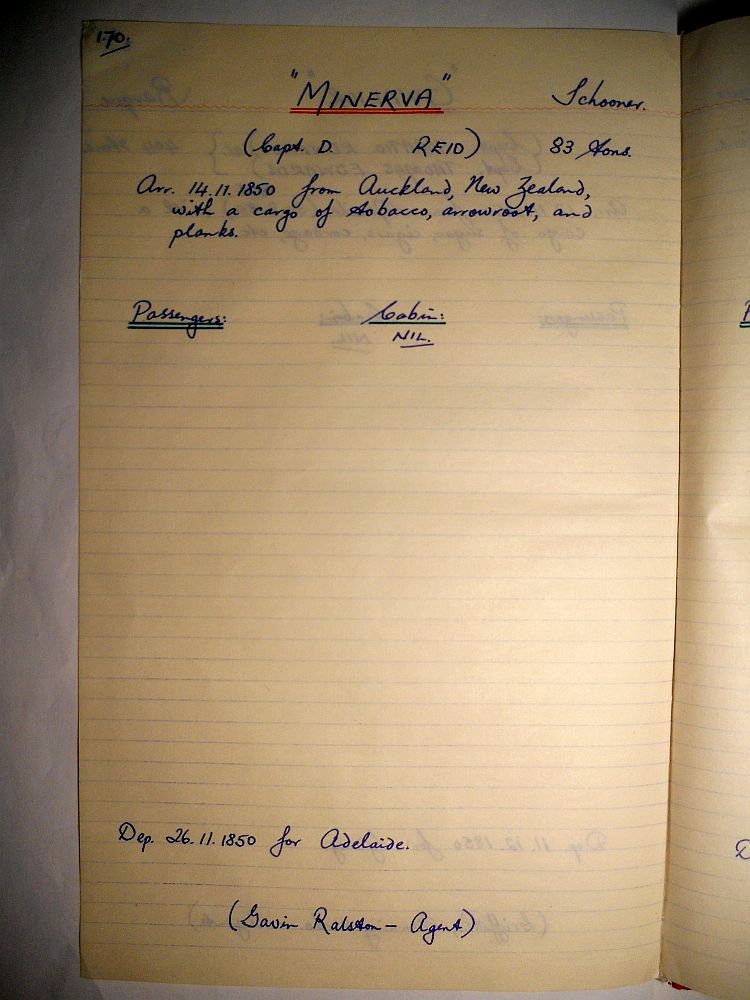 170.
"MINERVA" Schooner.
(Capt. D. REID) 83 tons.
Arr. 14.11.1850 from Auckland, New Zealand,
with a cargo of tobacco, arrowroot, and
planks.
Passengers: Cabin:
NIL.
Dep. 26.11.1850 for Adelaide.
(Gavin Ralston - Agent)